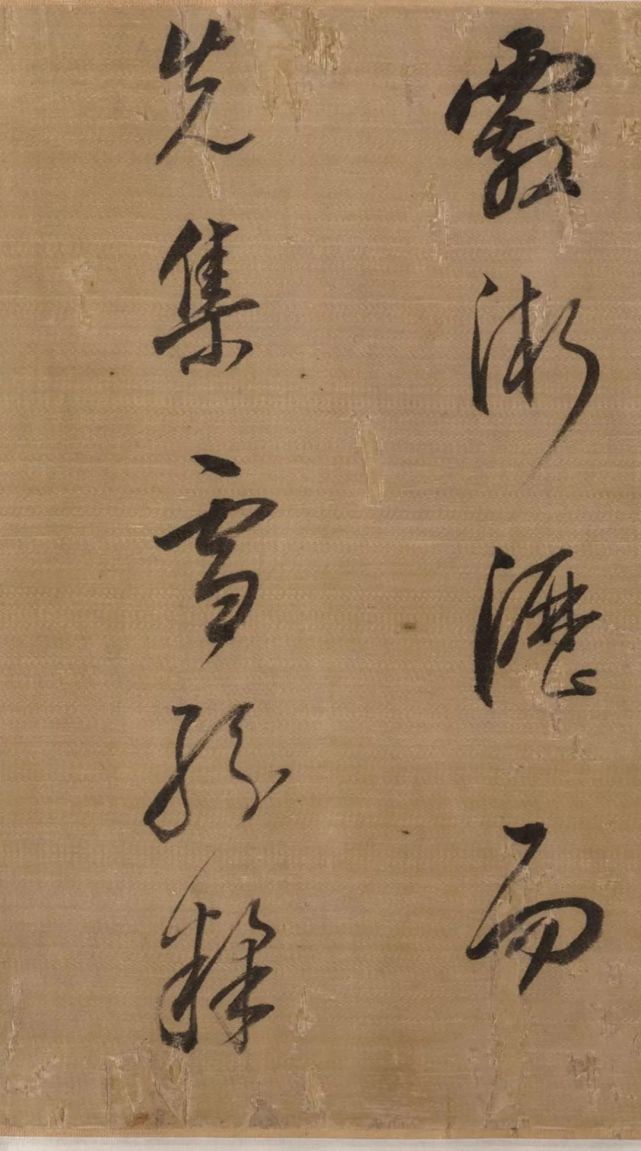 霰淅瀝而
先集雪紛糅